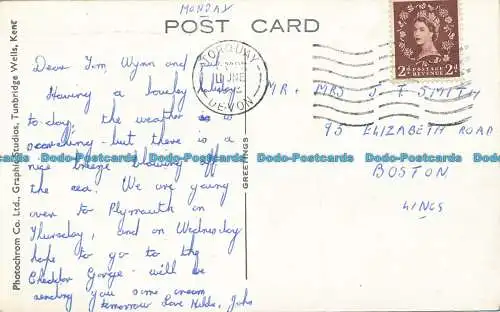 MONDAY
POST CARD
Dear Jim, Wynn and
Having a lovely holiday
to-day, the weather is
scorching - but there is a
nice breeze blowing off
the sea. We are going
over to Plymouth on
Thursday, and on Wednesday
hope to go to the
Cheddar Gorge - will be
sending you some cream
tomorrow Love Hilda, John
TORQUAY
JUNE
DEVON
2D POSTAGE REVENUE 2D
MR. MRS J T SMITH
95 ELIZABETH ROAD
BOSTON
LINCS
GREETINGS
Photochrom Co. Ltd., Graphic Studios, Tunbridge Wells, Kent
Dodo-Postcards Dodo-Postcards Dodo-Postcards Dodo-Postcards Dodo-Postcards